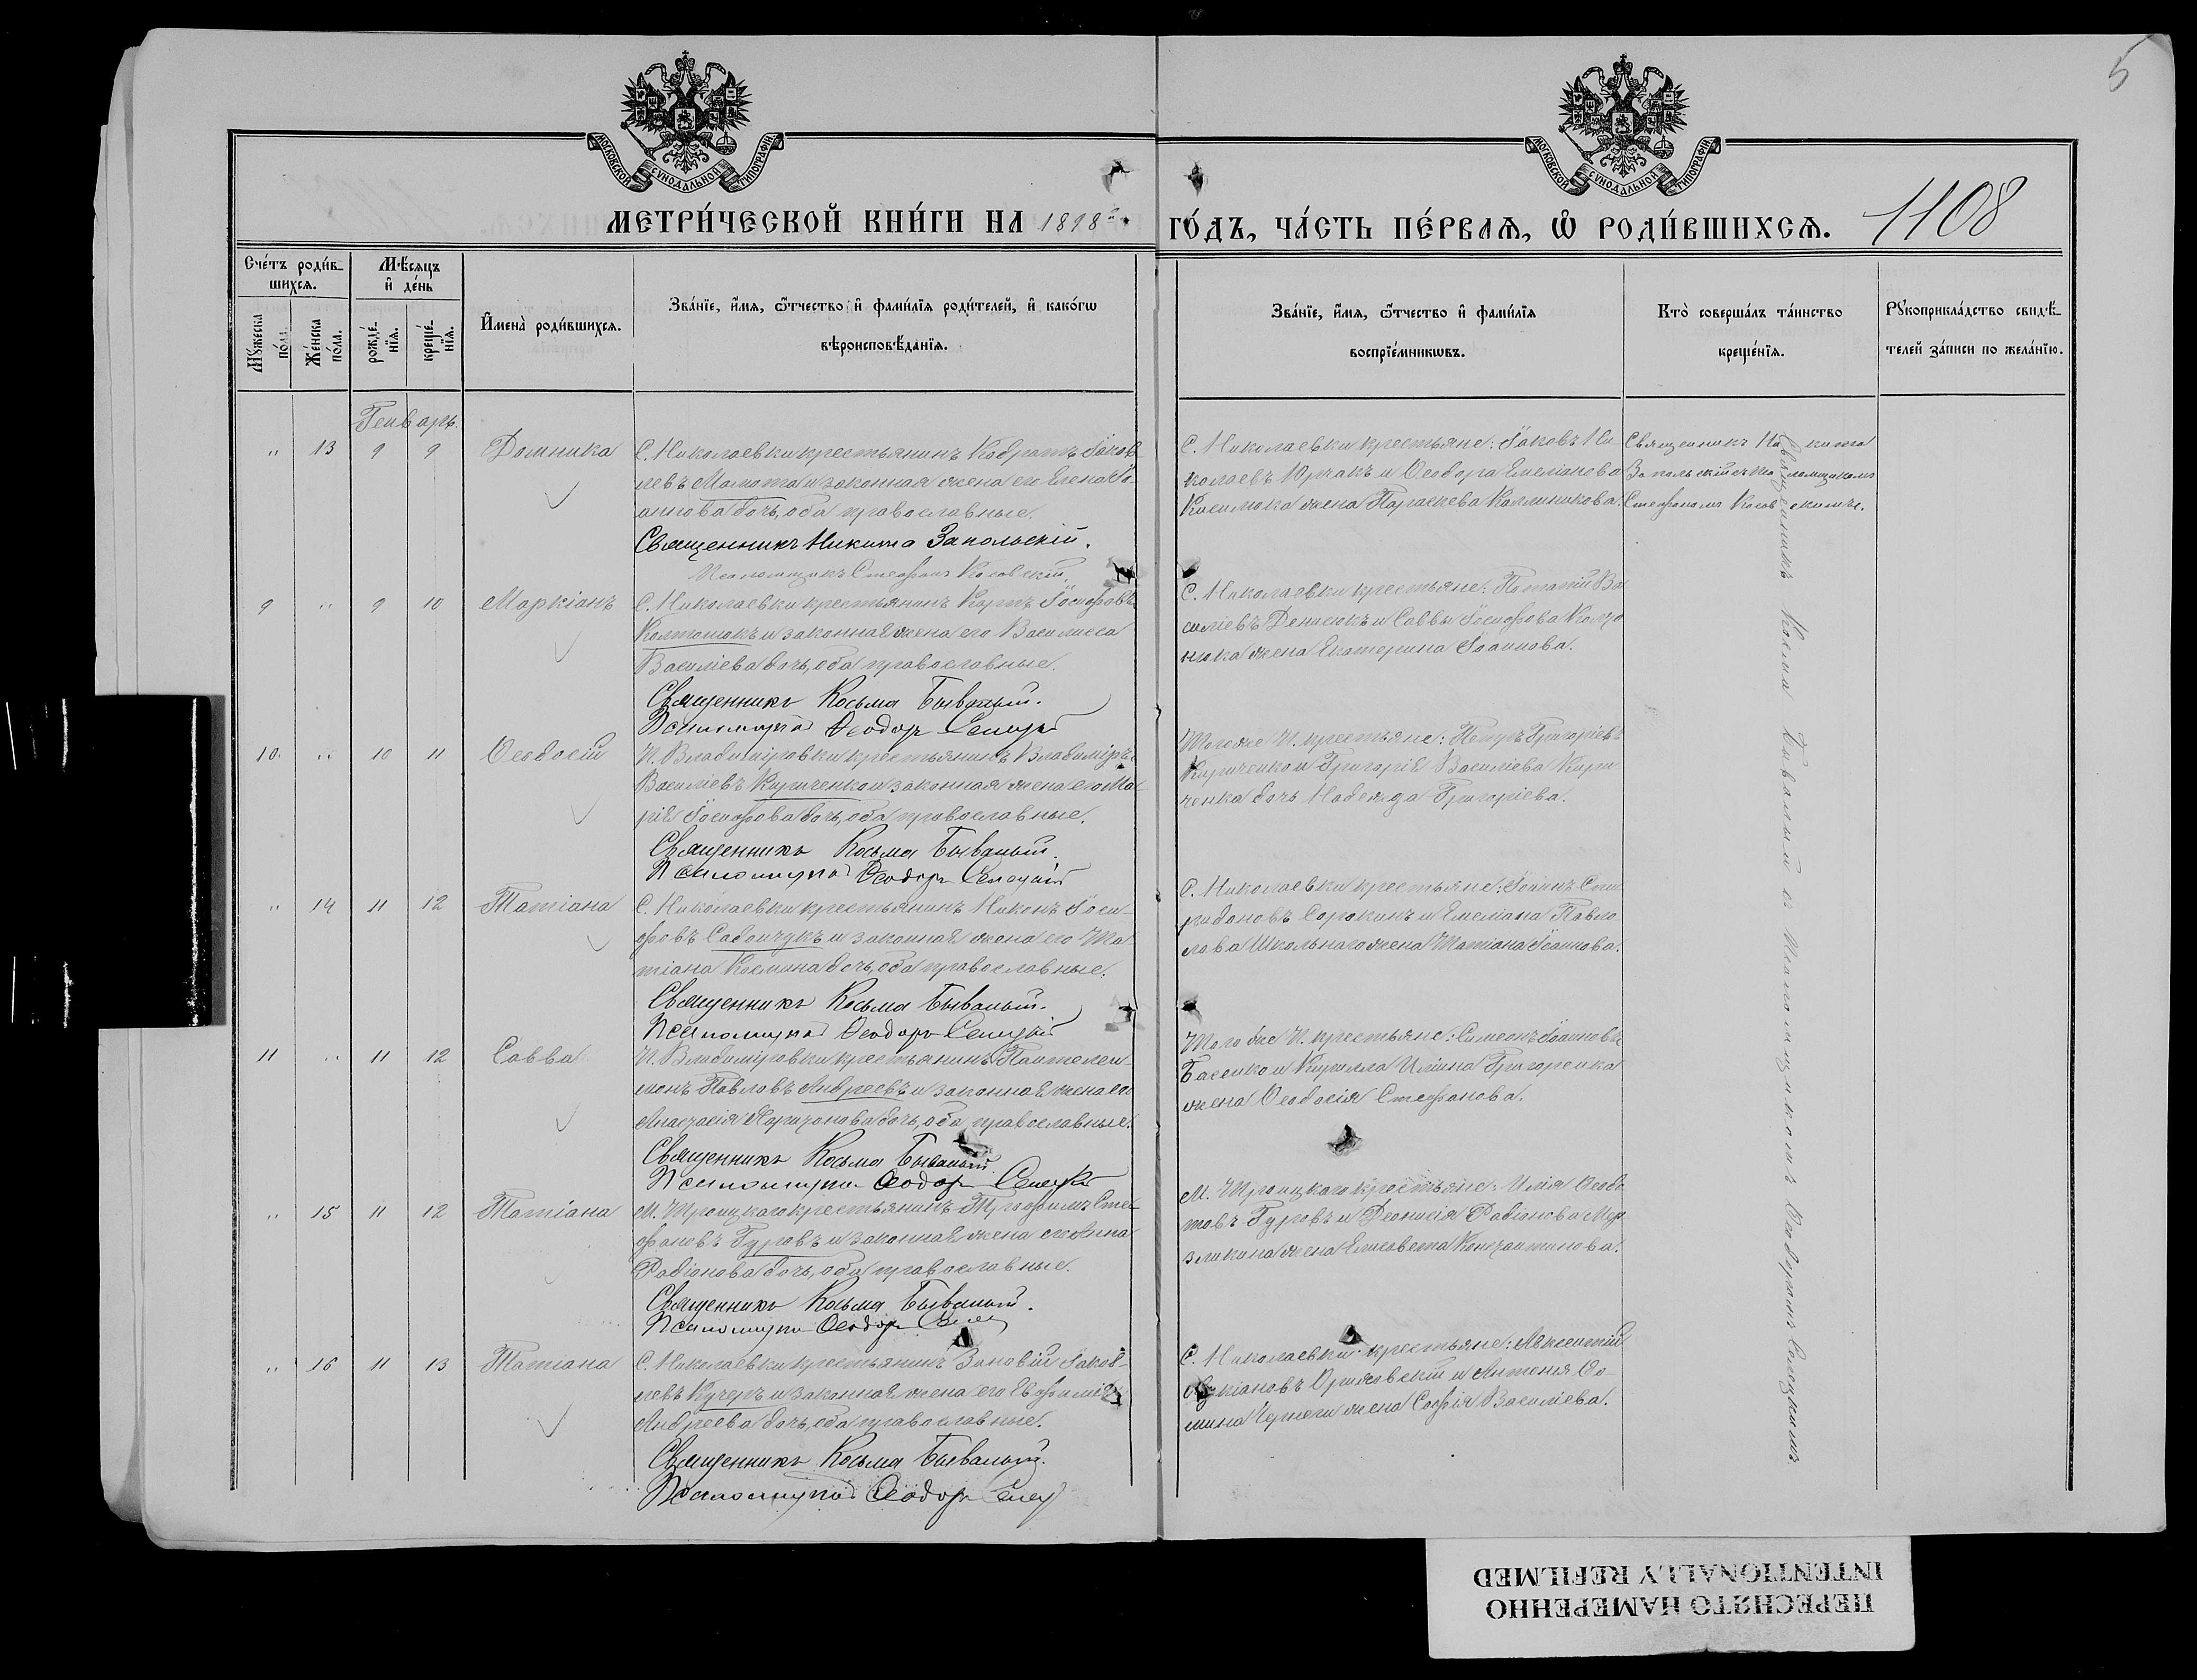 5
МОСКОВСКОЙ СѴНОДАЛЬНОЙ ТИПОГРАФІИ.
МОСКОВСКОЙ СѴНОДАЛЬНОЙ ТИПОГРАФІИ.
МЕТРИ́ЧЕСКОЙ КНИ́ГИ НА 1898 ГО́ДЪ, ЧА́СТЬ ПЕ́РВАѦ, Ѡ҆ РОДИ́ВШИХСѦ. 1108
Сче́тъ роди́в-
шихсѧ.
Мѣ́сѧцъ
и҆ де́нь
Мꙋ́жеска
по́ла.
Же́нска
по́ла.
рожде́-
нїѧ.
креще́-
нїѧ.
И҆мена̀ роди́вшихсѧ.
Зва́нїе, и҆́мѧ, ѻ҆́тчество и҆ фами́лїѧ роди́телей, и҆ како́гѡ
вѣроисповѣ́данїѧ.
Зва́нїе, и҆́мѧ, ѻ҆́тчество и҆ фами́лїѧ
воспрїе́мникѡвъ.
Кто̀ соверша́лъ та́инство
креще́нїѧ.
Рꙋкоприкла́дство свидѣ́-
телей за́писи по жела́нїю.
Генварь.
" 13 9 9 Домника
С. Николаевки крестьянинъ Кодратъ Іаков-
левъ Мамота и законная жена его Елена Іо-
аннова дочь, оба православные.
Священникъ Никита Запольскій.
Псаломщикъ Стефанъ Косовскій.
С. Николаевки крестьяне: Іаковъ Ни-
колаевъ Юрчакъ и Ѳеодора Емеліанова
жена Параскева Каллиникова.
Священникъ Никита
Запольскій съ псаломщикомъ
Стефаномъ Косовскимъ.
9 " 9 10 Маркіанъ
С. Николаевки крестьянинъ Карпъ Іосифовъ
Колтонюкъ и законная жена его Василисса
Василіева дочь, оба православные.
Священникъ Косьма Бывалый.
Псаломщикъ Ѳеодоръ Селецкій
С. Николаевки крестьяне: Потапій Ва-
силіевъ Денисюкъ и Саввы Іосифова
жена Екатерина Іоаннова.
10 " 10 11 Ѳеодосій
П. Владиміровки крестьянинъ Владиміръ
Василіевъ Кириченко и законная жена его Ма-
рія Іосифова дочь, оба православные.
Священникъ Косьма Бывалый.
Псаломщикъ Ѳеодоръ Селецкій
Того же П. крестьяне: Петръ Григоріевъ
Кириченко и Григорія Василіева Кири-
ченка дочь Надежда Григоріева.
" 14 11 12 Татіана
С. Николаевки крестьянинъ Никонъ Іоси-
фовъ Савончукъ и законная жена его Та-
тіана Космина дочь, оба православные.
Священникъ Косьма Бывалый.
Псаломщикъ Ѳеодоръ Селецкій
С. Николаевки крестьяне: Іоаннъ Спи-
ридоновъ Сорокинъ и Емеліана Павло-
лова Школьнаго жена Татіана Іоаннова.
11 " 11 12 Савва
П. Владиміровки крестьянинъ Пантелеи-
монъ Павловъ Андреевъ и законная жена его
Анастасія Харитонова дочь, оба православные.
Священникъ Косьма Бывалый.
Псаломщикъ Ѳеодоръ Селецкій
Того же П. крестьяне: Симеонъ Іоанновъ
Басенко и Кирилла Иліина Григоренка
жена Ѳеодосія Стефанова.
" 15 11 12 Татіана
М. Троицкаго крестьянинъ Трофимъ Сте-
фановъ Гуровъ и законная жена его Анна
Родіонова дочь, оба православные.
Священникъ Косьма Бывалый.
Псаломщикъ Ѳеодоръ
М. Троицкаго крестьяне: Илія Ѳеодо-
товъ Гуровъ и Діонисія Родіонова Мер-
зликина жена Елисавета Константинова.
" 16 11 13 Татіана
С. Николаевки крестьянинъ Зиновій Іаков-
левъ Кучеръ и законная жена его Евфимія
Андреева дочь, оба православные.
Священникъ Косьма Бывалый.
Псаломщикъ Ѳеодоръ
С. Николаевки крестьяне: Авксентій
Ориховскій и Антонія Ѳо-
мина Чернеги жена Софія Василіева.
Священникъ Косма Бывалый съ Псаломщикомъ Ѳеодоромъ Селецкимъ.
ПЕРЕСНЯТО НАМЕРЕННО
INTENTIONALLY REFILMED